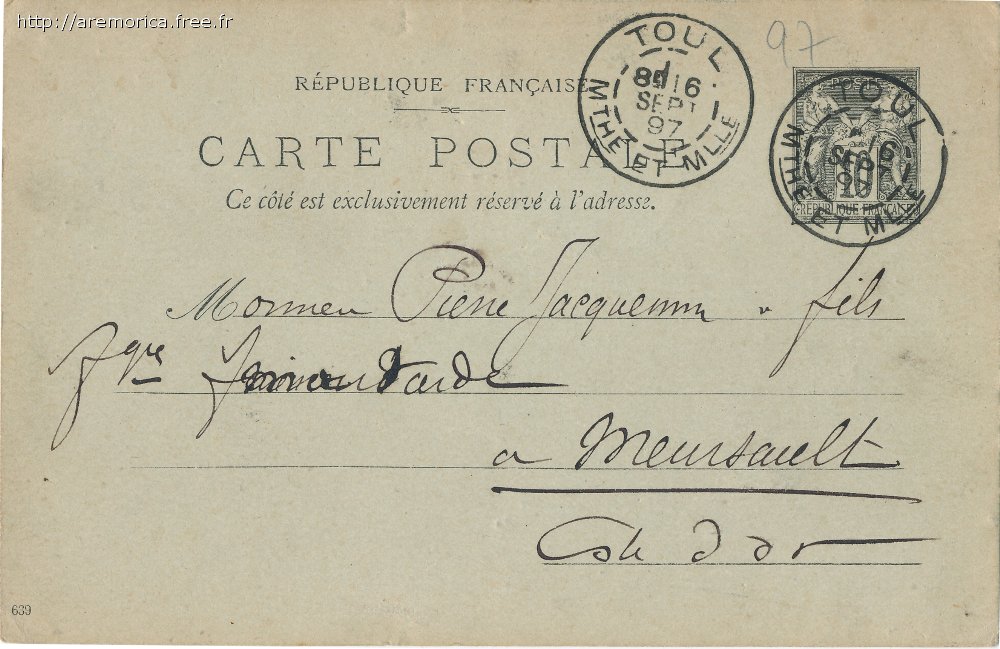 http://aremorica.free.fr
97
TOUL
8E 16
SEPT
97
MTHE ET MLLE
RÉPUBLIQUE FRANÇAISE
CARTE POSTALE
Ce côté est exclusivement réservé à l'adresse.
POSTES
10
RÉPUBLIQUE FRANÇAISE
TOUL
16
SEPT
97
MTHE ET MLLE
Monsieur Pierre Jacquemin fils
Fque moutarde
a Meursault
Cote d'or
639